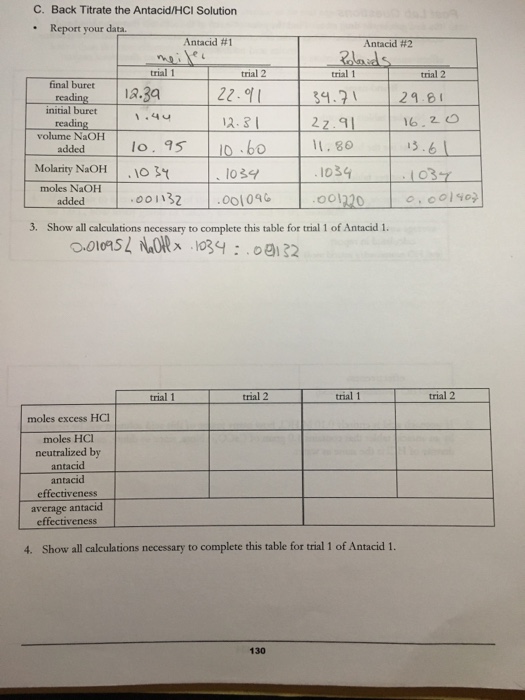 C. Back Titrate the Antacid/HCl Solution
• Report your data.
Antacid #1 Antacid #2
Rolaids
trial 1 trial 2 trial 1 trial 2
final buret reading 12.39 22.91 34.71 29.81
initial buret reading 1.44 12.31 22.91 16.20
volume NaOH added 10.95 10.60 11.80 13.61
Molarity NaOH .1034 .1034 .1034 .1034
moles NaOH added .001132 .001096 .001220 0.001407
3. Show all calculations necessary to complete this table for trial 1 of Antacid 1.
0.01095L NaOH x .1034 = .00132
trial 1 trial 2 trial 1 trial 2
moles excess HCl
moles HCl
neutralized by
antacid
antacid
effectiveness
average antacid
effectiveness
4. Show all calculations necessary to complete this table for trial 1 of Antacid 1.
130